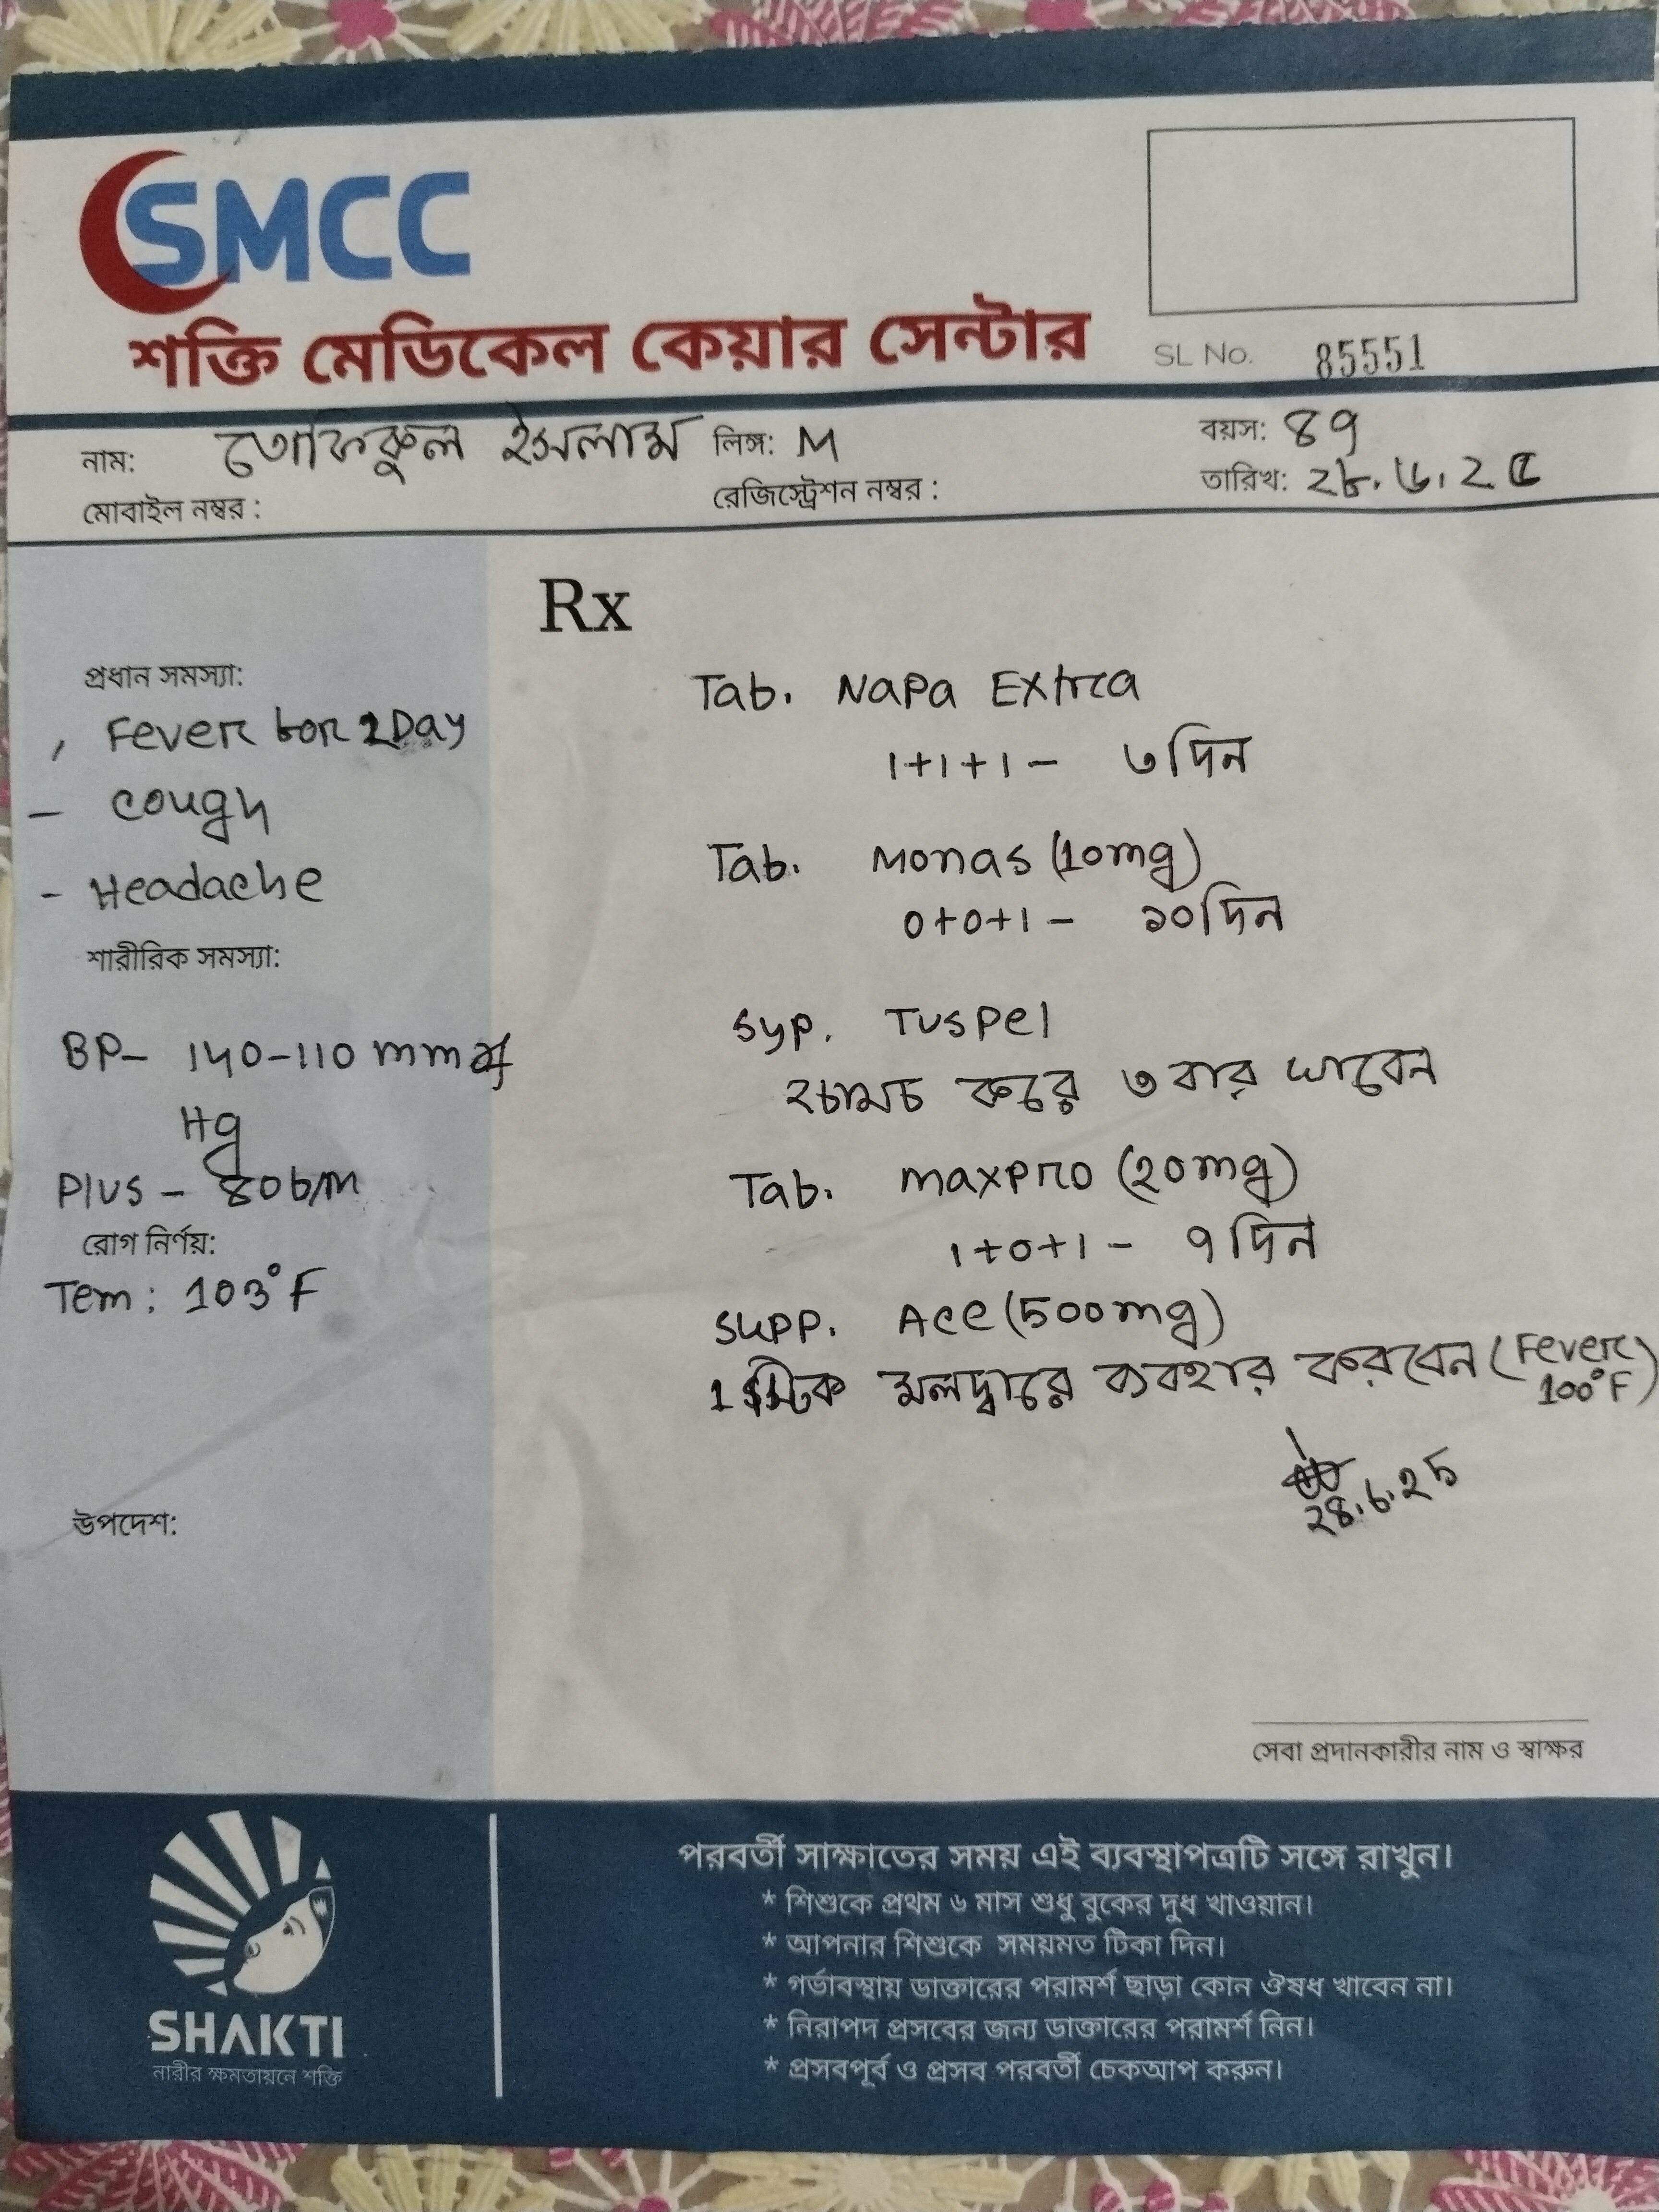 SMCC
শক্তি মেডিকেল কেয়ার সেন্টার
SL No. 85551
নাম: তোফিকুল ইসলাম লিঙ্গ: M বয়স: ৪৭
মোবাইল নম্বর : রেজিস্ট্রেশন নম্বর : তারিখ: ২৮.৬.২৫
Rx
প্রধান সমস্যা:
, Fever for 2Day
- cough
- Headache
শারীরিক সমস্যা:
BP- 140-110 mm of
Hg
Plus - 80b/m
রোগ নির্ণয়:
Tem: 103°F
উপদেশ:
Tab. Napa Extra
1+1+1 - ৩দিন
Tab. Monas (10mg)
0+0+1 - ১০দিন
Syp. Tuspel
২চামচ করে ৩ বার খাবেন
Tab. maxpro (20mg)
1+0+1 - ৭দিন
Supp. Ace (500mg)
1 স্টিক মলদ্বারে ব্যবহার করবেন (Fever
100°F)
28.6.25
সেবা প্রদানকারীর নাম ও স্বাক্ষর
SHAKTI
নারীর ক্ষমতায়নে শক্তি
পরবর্তী সাক্ষাতের সময় এই ব্যবস্থাপত্রটি সঙ্গে রাখুন।
* শিশুকে প্রথম ৬ মাস শুধু বুকের দুধ খাওয়ান।
* আপনার শিশুকে সময়মত টিকা দিন।
* গর্ভাবস্থায় ডাক্তারের পরামর্শ ছাড়া কোন ঔষধ খাবেন না।
* নিরাপদ প্রসবের জন্য ডাক্তারের পরামর্শ নিন।
* প্রসবপূর্ব ও প্রসব পরবর্তী চেকআপ করুন।